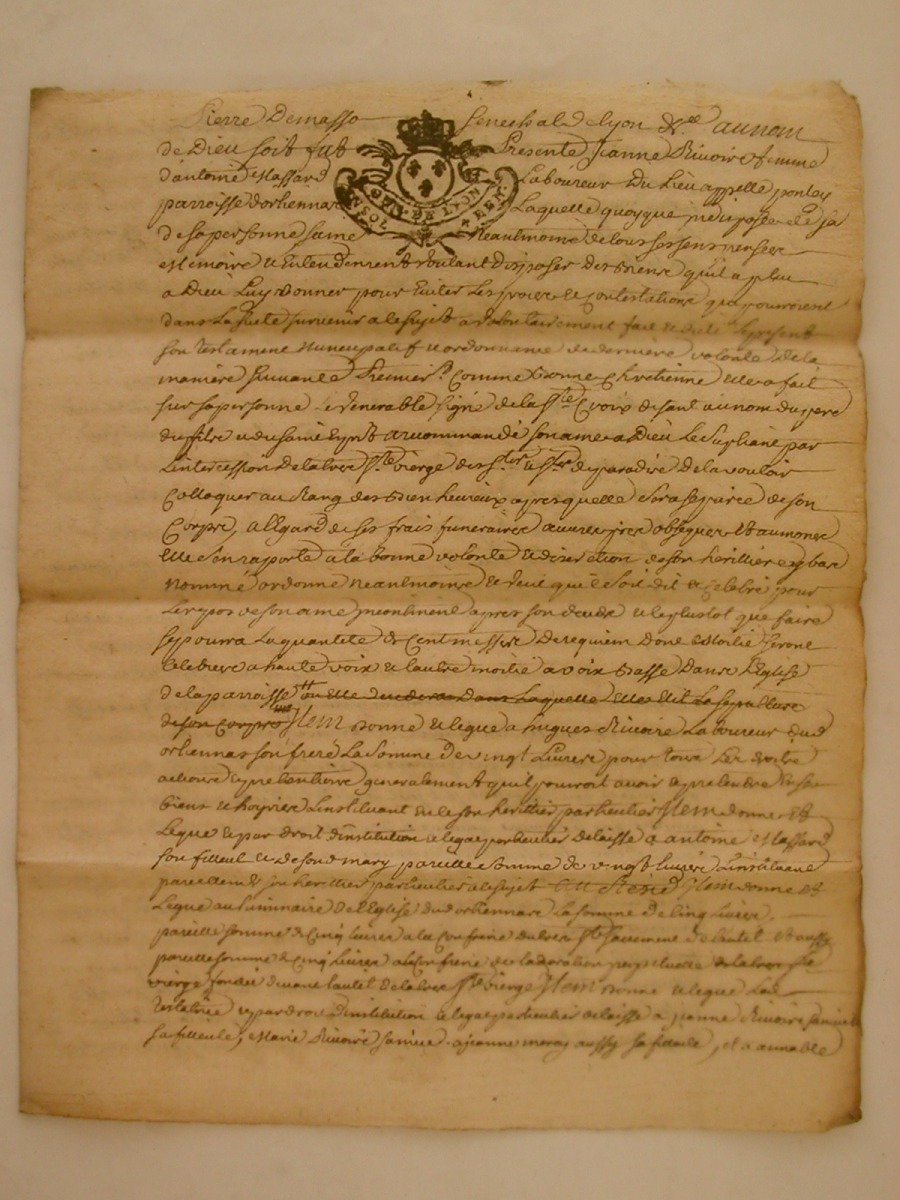 Pierre Demasso Senechal de lyon &c.ª au nom
de Dieu soit fut Presente Jeanne Rivoire femme
d'antoine Massard Laboureur du Lieu appellé ponley
parroisse d'orliennas Laquelle quoyque indisposée de sa
de sa personne saine Neantmoins de tous ses sens pensée
Memoire & Entendement voulant Disposer des Biens qu'il a pleu
a Dieu Luy Donner pour Eviter Les procès & Contestations qui pourroient
dans La suite survenir a le sujet a volontairement fait & dicté le present
son Testament Nuncupatif & ordonnance de derniere volonté de la
maniere suivante Premier.t Comme Bonne Chretienne elle a fait
sur sa personne le venerable signe de la s.te Croix disant au nom du pere
du fils & du saint Esprit a recommandé son ame a Dieu Le supliant par
L'intercession de la tres s.te vierge des s.ts & s.tes du paradis de la vouloir
Colloquer au Rang des Bien heureux apres quelle sera separée de son
Corps, a l'égard de ses frais funeraires œuvres pies obseques & aumones
Elle s'en rapporte a la bonne volonté & discretion de son heritier cy bas
nommé ordonne Neantmoins & veut qu'il soit dit & celebré pour
Le repos de son ame incontinent apres son deceds & le plustot que faire
se pourra La quantité de Cent messes de requiem Dont Moitié seront
Celebrées a haute voix & l'autre moitié a voix Basse Dans L'Eglise
de la parroisse ou elle decedera dans Laquelle Elle Elit La sepulture
de son corps Item donne & legue a hugues Rivoire Laboureur dud
orliennas son frere La somme De vingt Livres pour tous ses droits
actions & pretentions generalement qu'il pourroit avoir & pretendre en ses
biens & hoyries L'instituant en ce son heritier particulier Item donne et
Legue & par droit d'institution & legat particulier delaisse a antoine Massard
son filleul & de son d mary pareille somme de vingt livres L'instituant
pareillement son heritier particulier Item donne et
Legue au Luminaire de l'Eglise dud orliennas La somme de Cinq Livres,
pareille somme de Cinq Livres a la Confrerie du tres s.t sacrement de l'autel & aussy
pareille somme de Cinq Livres a la Confrerie de l'adoration perpetuelle de la tres s.te
vierge fondée devant l'autel de la tres s.te vierge Item donne & legue Lad
Testatrice & par droit d'institution & legat particulier delaisse a jeanne Rivoire sa niece
sa filleule, Marie Rivoire sa niece, a jeanne aussy sa filleule, et a annable
SEN. DE LYON